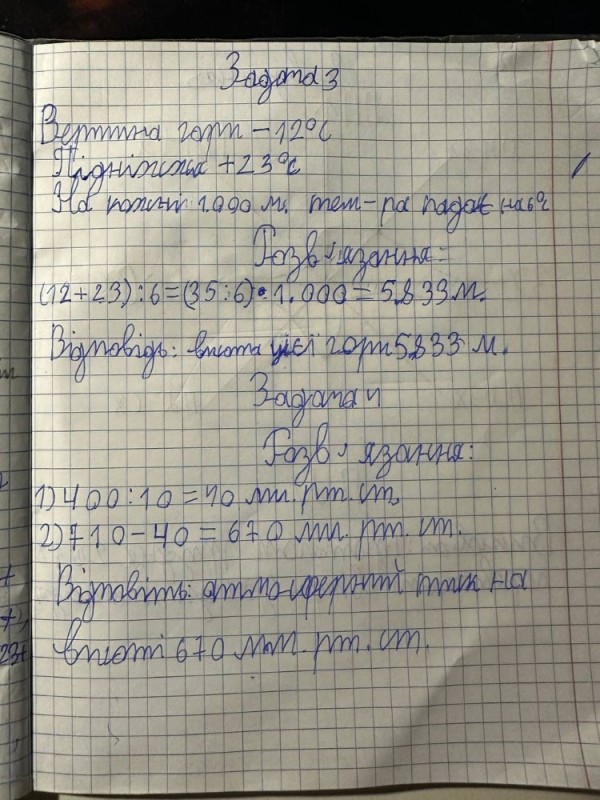 Задача 3
Вершина гори – 12°С
Підніжжя +23°С
На кожні 1.000 м. тем-ра падає на 6°С
Розв'язання:
(12+23):6=(35:6)•1.000=5.833м.
Відповідь: висота цієї гори 5833 м.
Задача 4
Розв'язання:
1) 400:10=40 мм. рт. ст.
2) 710-40=670 мм. рт. ст.
Відповіть: атмосферний тиск на
висоті 670 мм. рт. ст.
23+